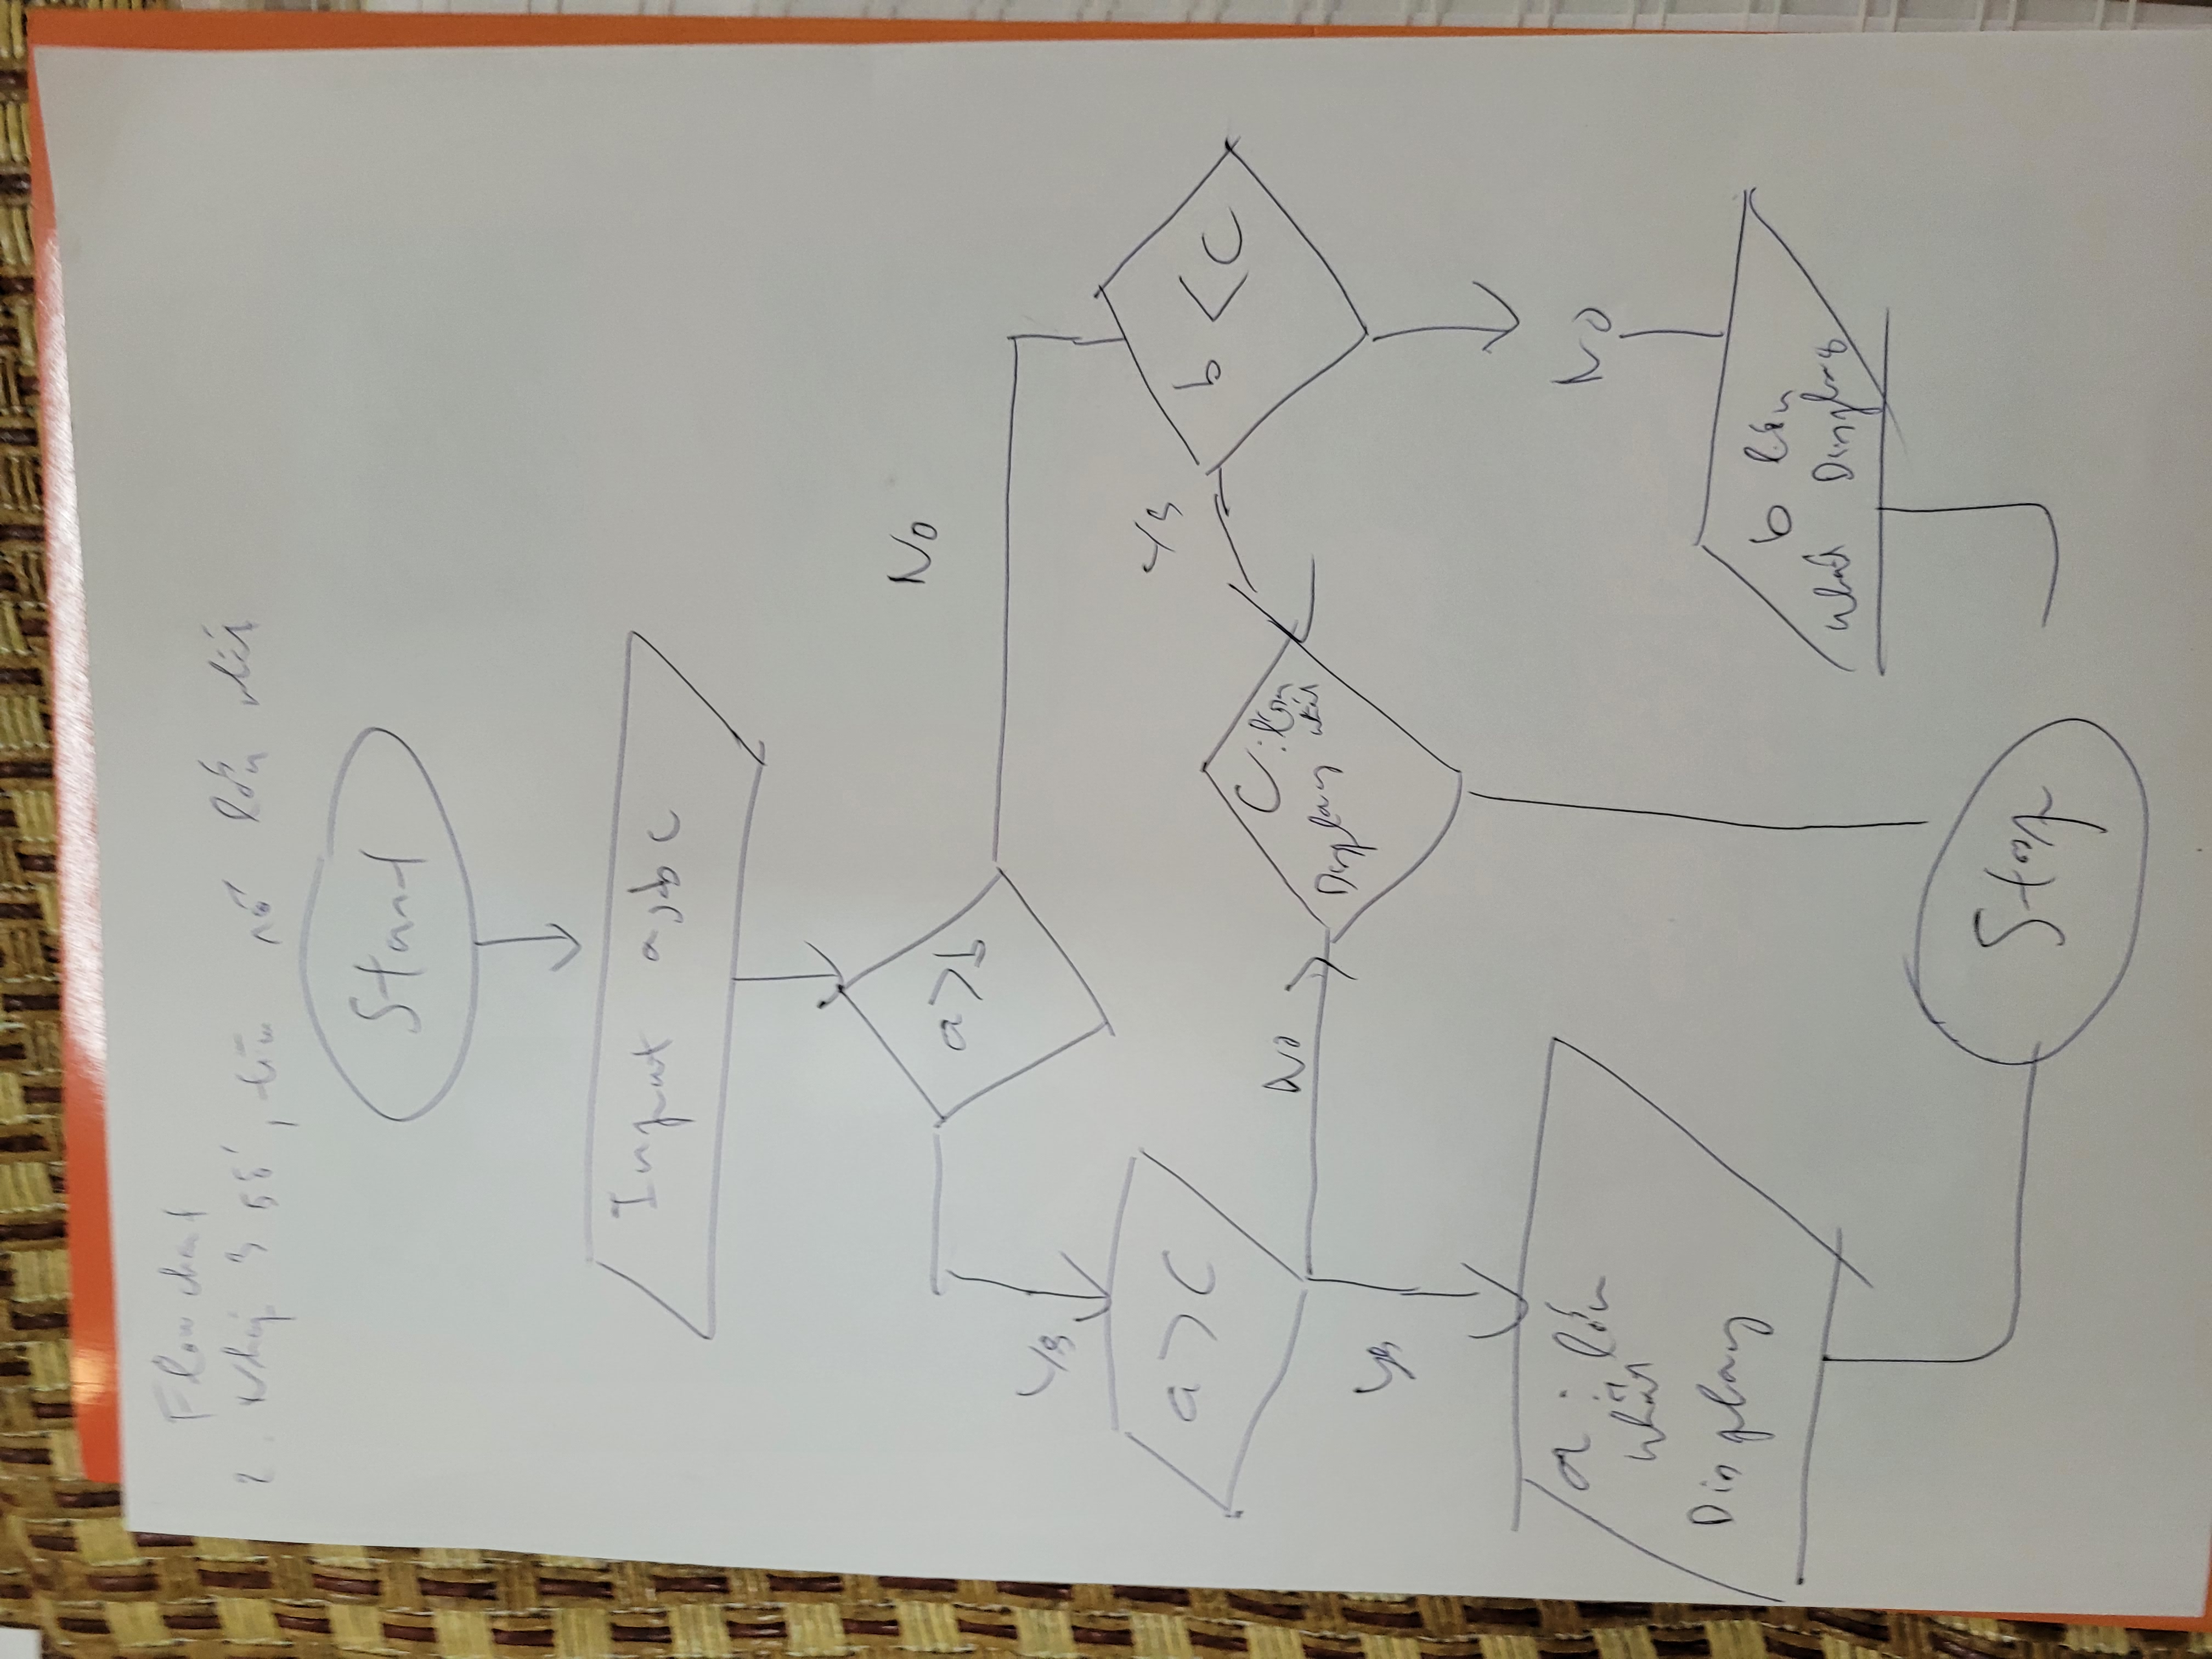 Flow chart
2. Nhập 3 số, tìm số lớn nhất
Start
Input a, b c
a > b
No
Yes
a > c
Yes
b < c
No
C : lớn
Display nhất
Yes
a : lớn
nhất
Display
No
b lớn
nhất Display
Stop